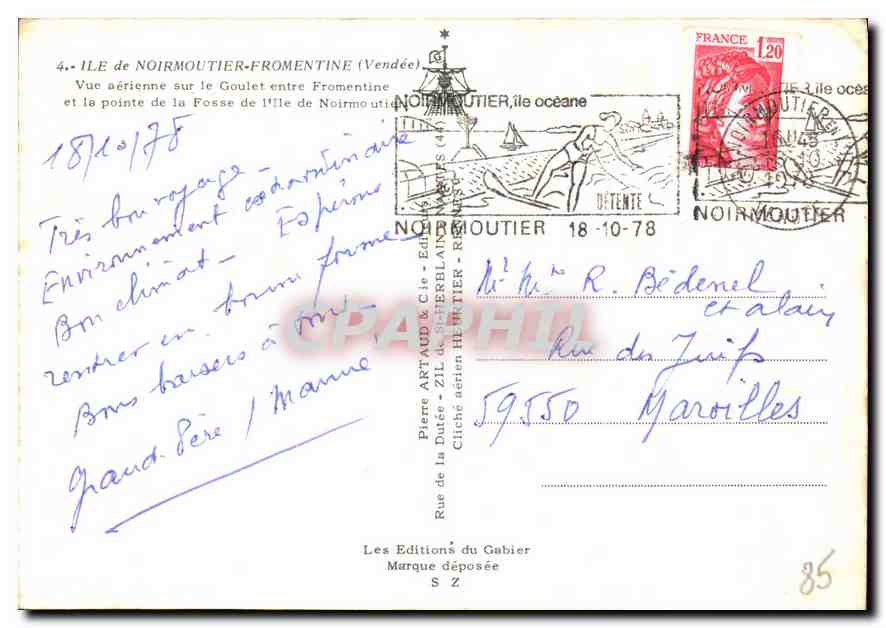 4.- ILE de NOIRMOUTIER-FROMENTINE (Vendée)
Vue aérienne sur le Goulet entre Fromentine
et la pointe de la Fosse de l'Ile de Noirmoutier
18/10/78
Très bon voyage -
Environnement extraordinaire
Bon climat - Espérons
rentrer en bonne forme -
Bons baisers à tous -
Grand-Père / Manné
NOIRMOUTIER, île océane
DÉTENTE
NOIRMOUTIER 18-10-78
FRANCE
1,20
île océane
NOIRMOUTIER
16H45
18-10
1978
NOIRMOUTIER
Pierre ARTAUD & Cie - Editeurs
Rue de la Dutée - ZIL de St-HERBLAIN - NANTES (44)
Cliché aérien HEURTIER - RENNES
Mr Mme R. Bédenel
et alain
Rue des Juifs
59550 Maroilles
CPAPHIL
Les Editions du Gabier
Marque déposée
S Z
85